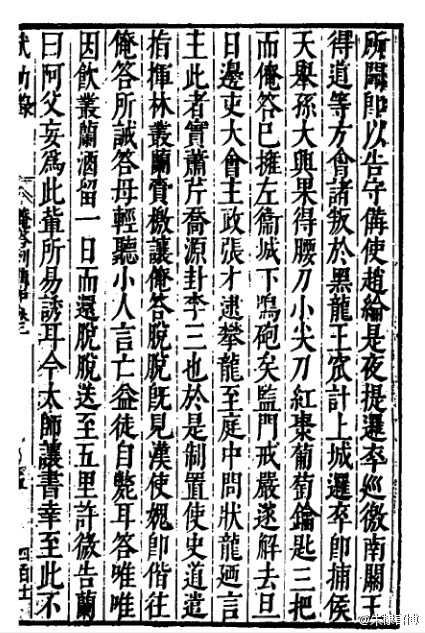 所聞即以告守備使趙綸是夜提邏卒巡徼南關王
得道等方會諸叛於黑龍王宮計上城邏卒即捕侯
天舉孫大興果得腰刀小尖刀紅棗葡萄鑰匙三把
而俺答已擁左衞城下鳴砲矣監門戒嚴遂解去旦
日邊吏大會主政張才逮攀龍至庭中問狀龍廼言
主此者實蕭芹喬源封李三也於是制置使史道遣
指揮林叢蘭賫檄讓俺答脫脫旣見漢使媿卽偕往
俺答所誠答母輕聽小人言亡益徒自斃耳答唯唯
因飲叢蘭酒留一日而還脫脫送至五里許微告蘭
曰阿父妄爲此輩所易誘耳今太師讓書幸至此不
武功錄